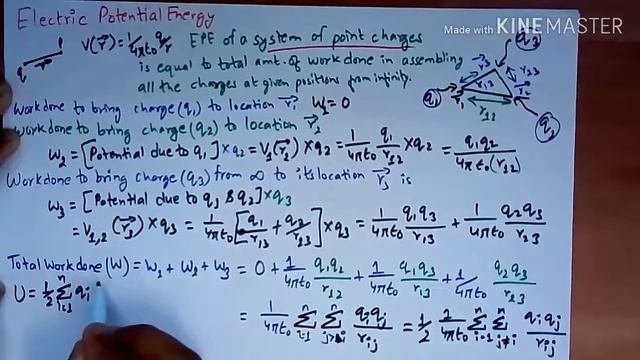 Electric Potential Energy
Made with KINEMASTER
V(r⃗) = 1/4πε₀ q/r
q r⃗
EPE of a system of point charges
is equal to total amt. of work done in assembling
all the charges at given positions from infinity.
q₁ r₁ r₁₂ r₁₃ r₂₃ r⃗₂ r⃗₃ q₂ q₃
Work done to bring charge (q₁) to location r⃗₁ W₁ = 0
Work done to bring charge (q₂) to location r⃗₂
W₂ = [Potential due to q₁] × q₂ = V₁(r⃗₂) × q₂ = 1/4πε₀ q₁/r₁₂ × q₂ = q₁q₂/4πε₀(r₁₂)
Work done to bring charge (q₃) from ∞ to its location r⃗₃ is
W₃ = [Potential due to q₁ & q₂] × q₃
= V₁,₂(r⃗₃) × q₃ = 1/4πε₀ [q₁/r₁₃ + q₂/r₂₃] × q₃ = 1/4πε₀ q₁q₃/r₁₃ + 1/4πε₀ q₂q₃/r₂₃
Total Work done (W) = W₁ + W₂ + W₃ = 0 + 1/4πε₀ q₁q₂/r₁₂ + 1/4πε₀ q₁q₃/r₁₃ + 1/4πε₀ q₂q₃/r₂₃
U = 1/2 Σⁿᵢ₌₁ qᵢ
= 1/4πε₀ Σⁿᵢ₌₁ Σⁿⱼ>ᵢ qᵢqⱼ/rᵢⱼ = 1/2 2/4πε₀ Σⁿᵢ₌₁ Σⁿⱼ≠ᵢ qᵢqⱼ/rᵢⱼ